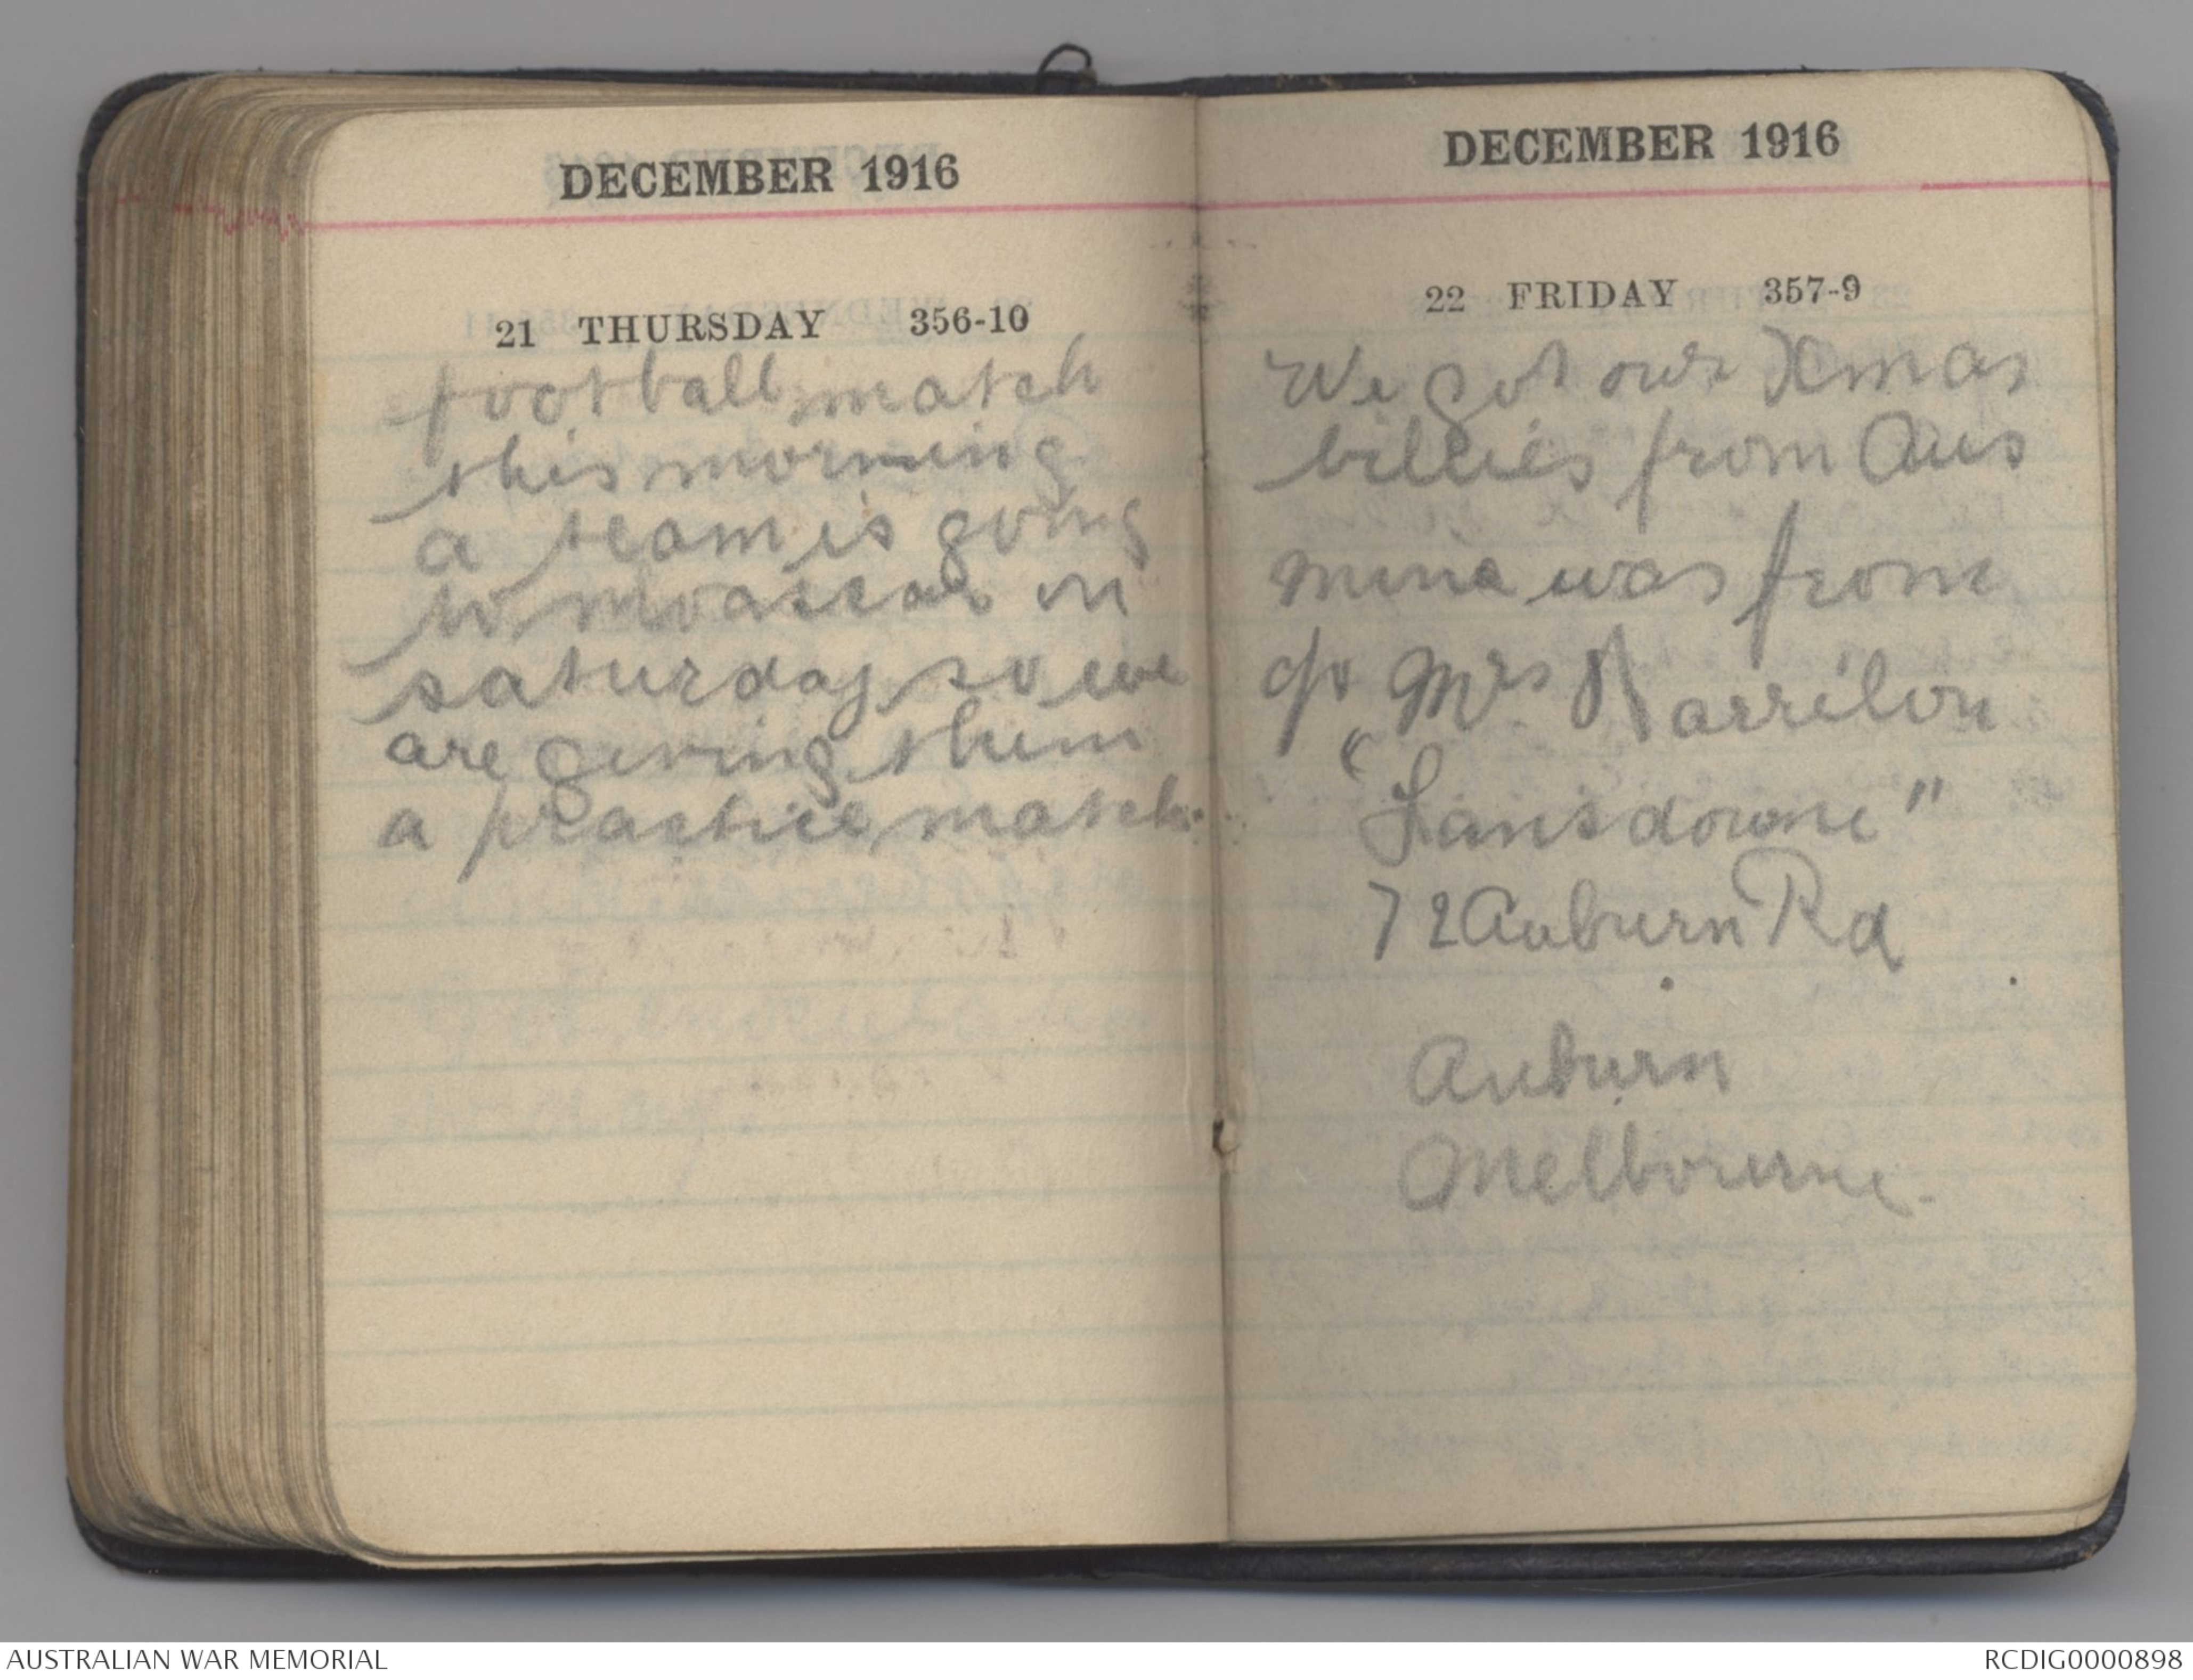 DECEMBER 1916
21 THURSDAY 356-10
football match
this morning
a team is going
to moascar on
saturday so we
are giving them
a practice match.
DECEMBER 1916
22 FRIDAY 357-9
We got our Xmas
billies from Aus
mine was from
c/o Mrs
"Lansdowne"
72 Auburn Rd
Auburn
Melbourne.
AUSTRALIAN WAR MEMORIAL
RCDIG0000898